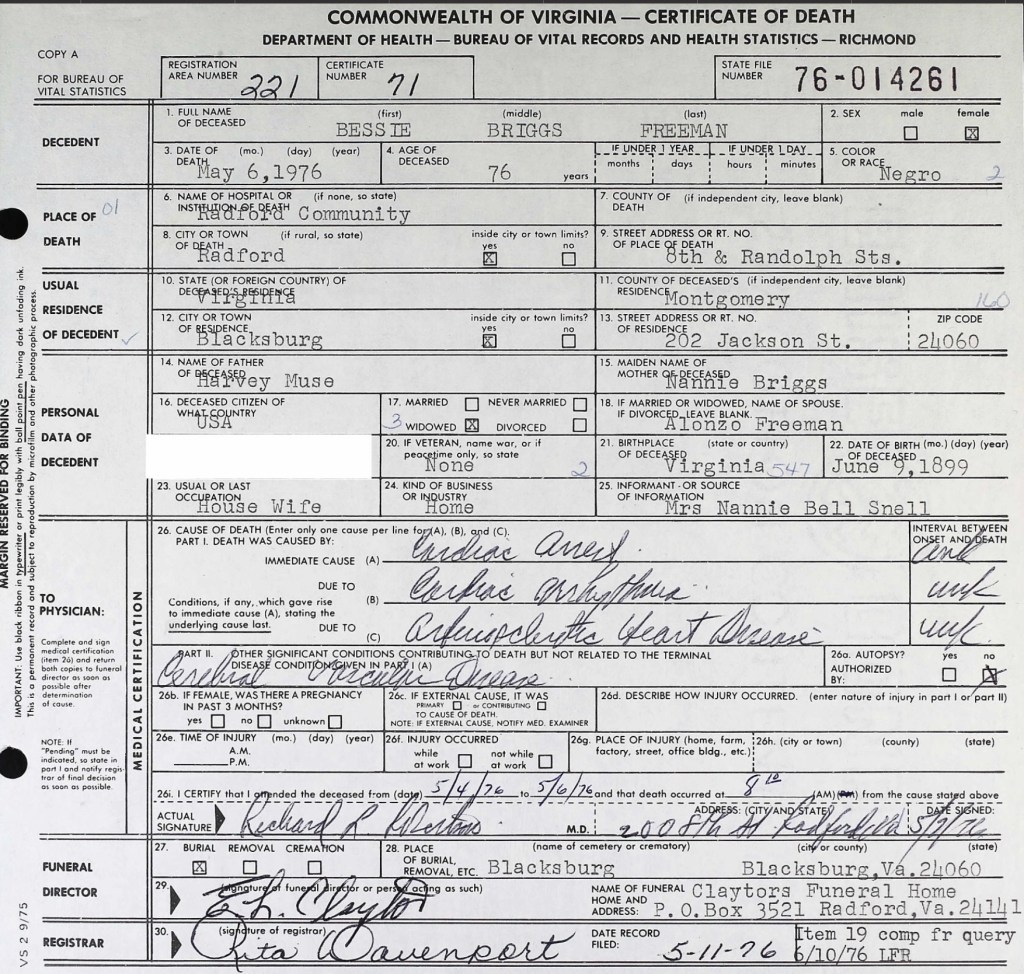 COMMONWEALTH OF VIRGINIA — CERTIFICATE OF DEATH
DEPARTMENT OF HEALTH — BUREAU OF VITAL RECORDS AND HEALTH STATISTICS — RICHMOND
COPY A
FOR BUREAU OF VITAL STATISTICS
REGISTRATION AREA NUMBER 221
CERTIFICATE NUMBER 71
STATE FILE NUMBER 76-014261
DECEDENT
1. FULL NAME OF DECEASED (first) (middle) (last)
BESSIE BRIGGS FREEMAN
2. SEX male female X
3. DATE OF DEATH (mo.) (day) (year)
May 6,1976
4. AGE OF DECEASED 76 years
IF UNDER 1 YEAR months days
IF UNDER 1 DAY hours minutes
5. COLOR OR RACE Negro 2
PLACE OF DEATH 01
6. NAME OF HOSPITAL OR INSTITUTION OF DEATH (if none, so state)
Radford Community
7. COUNTY OF DEATH (if independent city, leave blank)
8. CITY OR TOWN OF DEATH (if rural, so state)
Radford
inside city or town limits? yes X no
9. STREET ADDRESS OR RT. NO. OF PLACE OF DEATH
8th & Randolph Sts.
USUAL RESIDENCE OF DECEDENT ✓
10. STATE (OR FOREIGN COUNTRY) OF DECEASED'S RESIDENCE
Virginia
11. COUNTY OF DECEASED'S RESIDENCE (if independent city, leave blank)
Montgomery 160
12. CITY OR TOWN OF RESIDENCE
Blacksburg
inside city or town limits? yes X no
13. STREET ADDRESS OR RT. NO. OF RESIDENCE
202 Jackson St.
ZIP CODE 24060
PERSONAL DATA OF DECEDENT
14. NAME OF FATHER OF DECEASED
Harvey Muse
15. MAIDEN NAME OF MOTHER OF DECEASED
Nannie Briggs
16. DECEASED CITIZEN OF WHAT COUNTRY
USA
17. MARRIED NEVER MARRIED
3 WIDOWED X DIVORCED
18. IF MARRIED OR WIDOWED, NAME OF SPOUSE. IF DIVORCED, LEAVE BLANK.
Alonzo Freeman
20. IF VETERAN, name war, or if peacetime only, so state
None 2
21. BIRTHPLACE OF DECEASED (state or country)
Virginia 547
22. DATE OF BIRTH OF DECEASED (mo.) (day) (year)
June 9,1899
23. USUAL OR LAST OCCUPATION
House Wife
24. KIND OF BUSINESS OR INDUSTRY
Home
25. INFORMANT - OR SOURCE OF INFORMATION
Mrs Nannie Bell Snell
TO PHYSICIAN:
Complete and sign medical certification (item 26) and return both copies to funeral director as soon as possible after determination of cause.
NOTE: If "Pending" must be indicated, so state in part I and notify registrar of final decision as soon as possible.
MEDICAL CERTIFICATION
26. CAUSE OF DEATH (Enter only one cause per line for (A), (B), and (C).
PART I. DEATH WAS CAUSED BY:
INTERVAL BETWEEN ONSET AND DEATH
IMMEDIATE CAUSE (A) Cardiac Arrest
Conditions, if any, which gave rise to immediate cause (A), stating the underlying cause last.
DUE TO (B) Cardiac arrhythmia unk
DUE TO (C) Arteriosclerotic Heart Disease unk.
PART II. OTHER SIGNIFICANT CONDITIONS CONTRIBUTING TO DEATH BUT NOT RELATED TO THE TERMINAL DISEASE CONDITION GIVEN IN PART I (A)
Cerebral Vascular Disease
26a. AUTOPSY? AUTHORIZED BY: yes no X
26b. IF FEMALE, WAS THERE A PREGNANCY IN PAST 3 MONTHS?
yes no unknown
26c. IF EXTERNAL CAUSE, IT WAS
PRIMARY or CONTRIBUTING
TO CAUSE OF DEATH.
NOTE: IF EXTERNAL CAUSE, NOTIFY MED. EXAMINER
26d. DESCRIBE HOW INJURY OCCURRED. (enter nature of injury in part I or part II)
26e. TIME OF INJURY (mo.) (day) (year)
A.M.
P.M.
26f. INJURY OCCURRED
while at work not while at work
26g. PLACE OF INJURY (home, farm, factory, street, office bldg., etc.)
26h. (city or town) (county) (state)
26i. I CERTIFY that I attended the deceased from (date) 5/4/76 to 5/6/76 and that death occurred at 8 10 (AM) (PM) from the cause stated above
ACTUAL SIGNATURE Richard L. M.D.
ADDRESS: (CITY AND STATE) 200 8th St Radford Va
DATE SIGNED: 5/7/76
FUNERAL DIRECTOR
27. BURIAL REMOVAL CREMATION
X
28. PLACE OF BURIAL, REMOVAL, ETC. (name of cemetery or crematory) (city or county) (state)
Blacksburg Blacksburg,Va.24060
29. (signature of funeral director or person acting as such)
E.L. Claytor
NAME OF FUNERAL HOME AND ADDRESS: Claytors Funeral Home
P.O.Box 3521 Radford,Va.24141
REGISTRAR
30. (signature of registrar)
Rita Davenport
DATE RECORD FILED: 5-11-76
Item 19 comp fr query
6/10/76 LFR
MARGIN RESERVED FOR BINDING
IMPORTANT: Use black ribbon in typewriter or print legibly with ball point pen having dark unfading ink.
This is a permanent record and subject to reproduction by microfilm and other photographic process.
VS 2 9/75